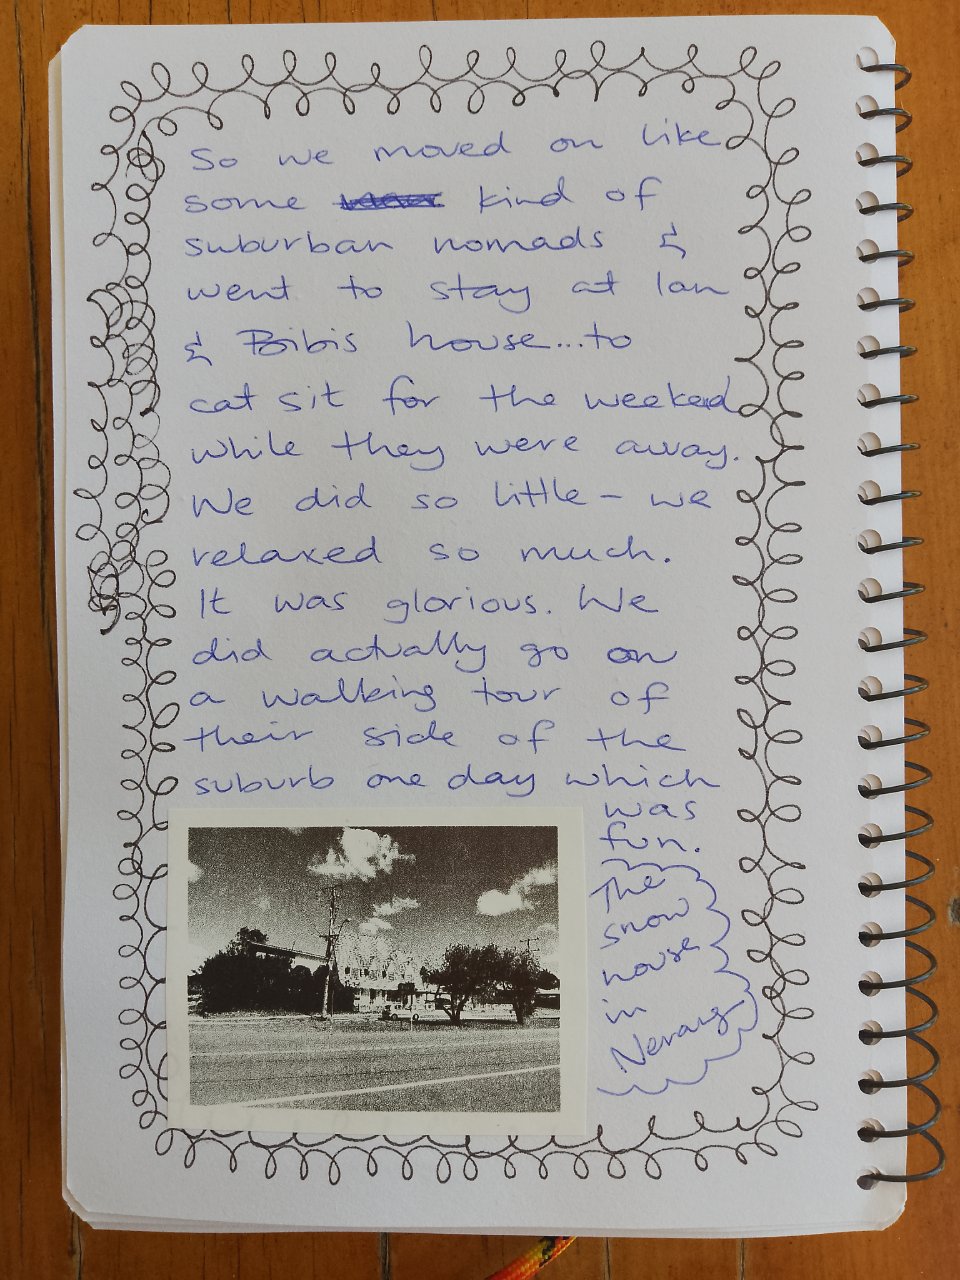 So we moved on like
some kind of
suburban nomads &
went to stay at Ian
& Bibis house...to
cat sit for the weekend
while they were away.
We did so little - we
relaxed so much.
It was glorious. We
did actually go on
a walking tour of
their side of the
suburb one day which
was
fun.
The
snow
house
in
Nerang